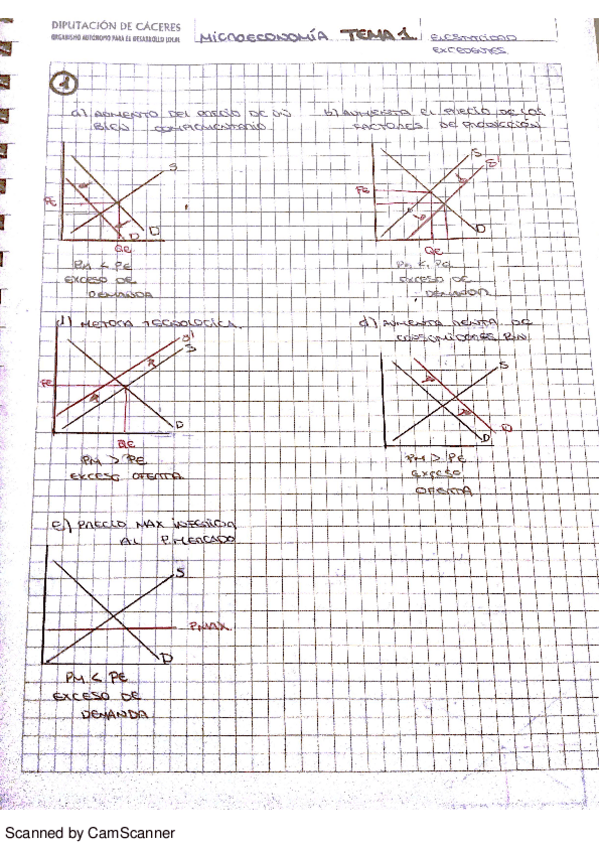 DIPUTACIÓN DE CÁCERES
ORGANISMO AUTÓNOMO PARA EL DESARROLLO LOCAL
MICROECONOMÍA TEMA 1.
ELASTICIDAD
EXCEDENTES
1
a) AUMENTO DEL PRECIO DE UN
BIEN COMPLEMENTARIO
b) AUMENTA EL PRECIO DE LOS
FACTORES DE PRODUCCIÓN
S
PE
D
D
QE
PM < PE
EXCESO DE
DEMANDA
S
S'
PE
D
QE
PM < PE
EXCESO DE
DEMANDA
MEJORA TECNOLOGICA.
S'
S
PE
D
QE
PM > PE
EXCESO OFERTA
d) AUMENTA RENTA DE
CONSUMIDORES
S
D
D
PM > PE
EXCESO
OFERTA
e) PRECIO MAX INFERIOR
AL P.MERCADO
S
PMAX
D
PM < PE
EXCESO DE
DEMANDA
Scanned by CamScanner